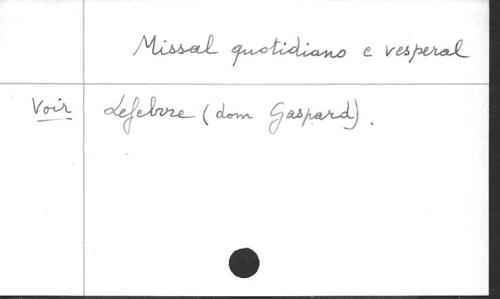 Missal quotidiano e vesperal
Voir Lefebvre (dom Gaspard).